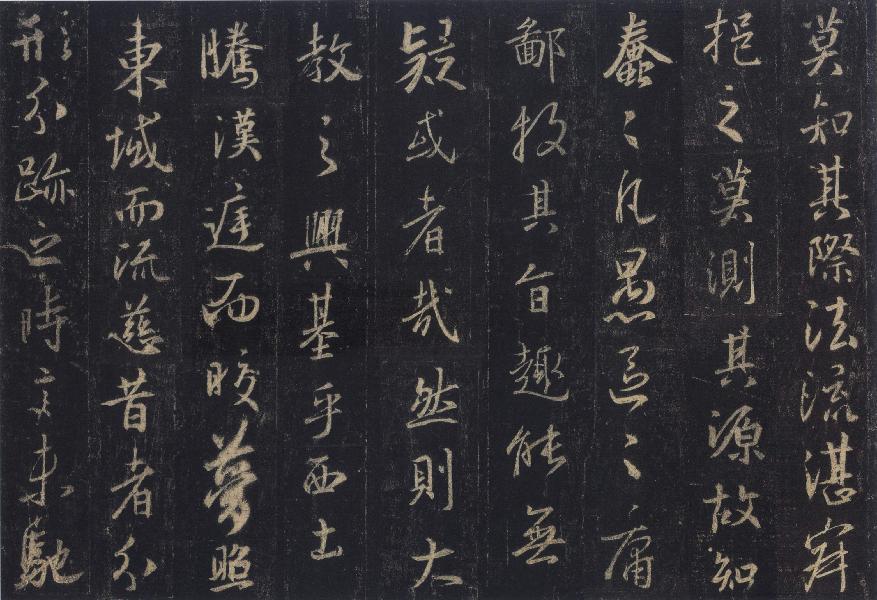 莫知其際法流湛寂
挹之莫測其源故知
蠢々凡愚區々庸
鄙投其旨趣能無
疑或者哉然則大
教之興基乎西土
騰漢庭而晈夢照
東域而流慈昔者分
形分跡之時言未馳